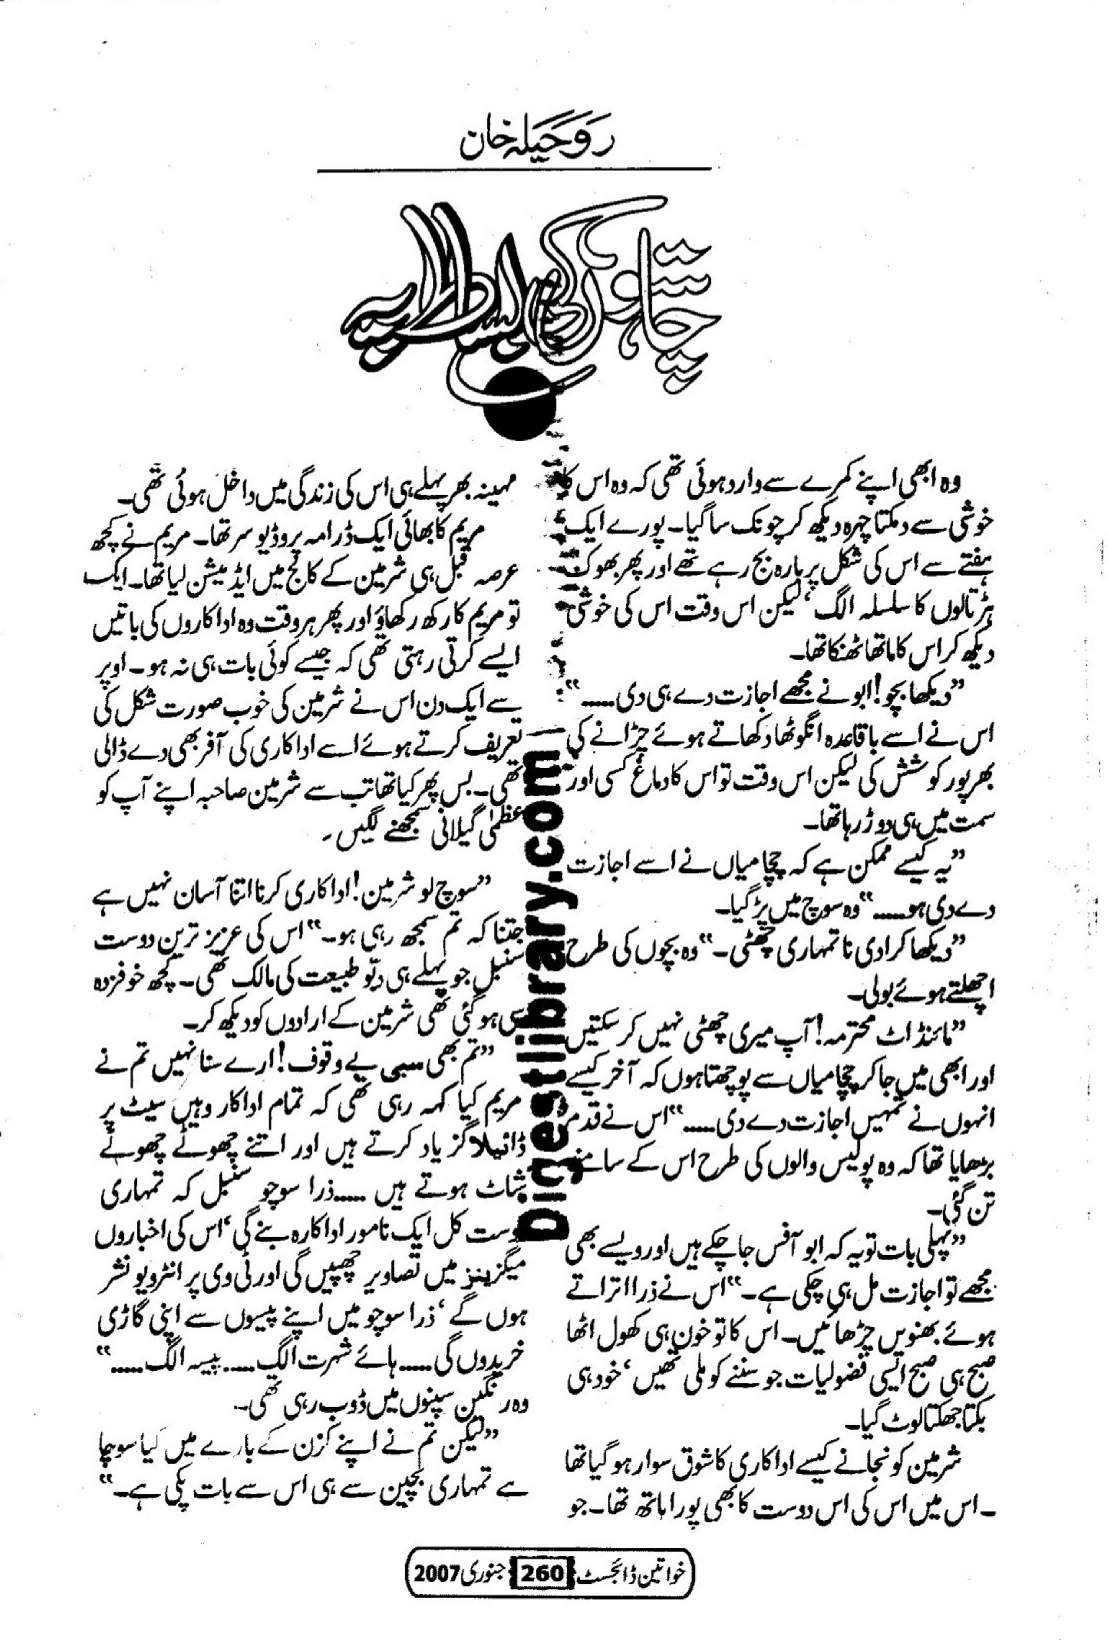 روحیلہ خان
چاہتوں کی بساط پہ
وہ ابھی اپنے کمرے سے وارد ہوئی تھی کہ وہ اس کا
خوشی سے دمکتا چہرہ دیکھ کر چونک سا گیا۔ پورے ایک
ہفتے سے اس کی شکل پر بارہ بج رہے تھے اور پھر بھوک
ہڑتالوں کا سلسلہ الگ، لیکن اس وقت اس کی خوشی
دیکھ کر اس کا ماتھا ٹھنکا تھا۔
”دیکھا بچو! ابو نے مجھے اجازت دے ہی دی.....“
اس نے اسے باقاعدہ انگوٹھا دکھاتے ہوئے چڑانے کی
بھرپور کوشش کی لیکن اس وقت تو اس کا دماغ کسی اور
سمت میں ہی دوڑ رہا تھا۔
”یہ کیسے ممکن ہے کہ چچا میاں نے اسے اجازت
دے دی ہو.....“ وہ سوچ میں پڑ گیا۔
”دیکھا کرا دی نا تمہاری چھٹی۔“ وہ بچوں کی طرح
اچھلتے ہوئے بولی۔
”مائنڈ اٹ محترمہ! آپ میری چھٹی نہیں کر سکتیں
اور ابھی میں جا کر چچا میاں سے پوچھتا ہوں کہ آخر کیسے
انہوں نے تمہیں اجازت دے دی.....“ اس نے قدم
بڑھایا تھا کہ وہ پولیس والوں کی طرح اس کے سامنے
تن گئی۔
”پہلی بات تو یہ کہ ابو آفس جا چکے ہیں اور ویسے بھی
مجھے تو اجازت مل ہی چکی ہے۔“ اس نے ذرا اتراتے
ہوئے بھنویں چڑھائیں۔ اس کا تو خون ہی کھول اٹھا
صبح ہی صبح ایسی فضولیات جو سننے کو ملی تھیں، خود ہی
بکتا جھکتا لوٹ گیا۔
شرمین کو نجانے کیسے اداکاری کا شوق سوار ہو گیا تھا
۔ اس میں اس کی اس دوست کا بھی پورا ہاتھ تھا۔ جو
مہینہ بھر پہلے ہی اس کی زندگی میں داخل ہوئی تھی۔
مریم کا بھائی ایک ڈرامہ پروڈیوسر تھا۔ مریم نے کچھ
عرصہ قبل ہی شرمین کے کالج میں ایڈمیشن لیا تھا۔ ایک
تو مریم کا رکھ رکھاؤ اور پھر ہر وقت وہ اداکاروں کی باتیں
ایسے کرتی رہتی تھی کہ جیسے کوئی بات ہی نہ ہو۔ اوپر
سے ایک دن اس نے شرمین کی خوب صورت شکل کی
تعریف کرتے ہوئے اسے اداکاری کی آفر بھی دے ڈالی
تھی۔ بس پھر کیا تھا تب سے شرمین صاحبہ اپنے آپ کو
عظمیٰ گیلانی سمجھنے لگیں۔
”سوچ لو شرمین! اداکاری کرنا اتنا آسان نہیں ہے
جتنا کہ تم سمجھ رہی ہو۔“ اس کی عزیز ترین دوست
سنبل جو پہلے ہی دبّو طبیعت کی مالک تھی۔ کچھ خوفزدہ
سی ہو گئی تھی شرمین کے ارادوں کو دیکھ کر۔
”تم بھی سبی بے وقوف! ارے سنا نہیں تم نے
مریم کیا کہہ رہی تھی کہ تمام اداکار وہیں سیٹ پر
ڈائیلاگز یاد کرتے ہیں اور اتنے چھوٹے چھوٹے
شاٹ ہوتے ہیں ..... ذرا سوچو سنبل کہ تمہاری
دوست کل ایک نامور اداکارہ بنے گی، اس کی اخباروں
میگزینز میں تصاویر چھپیں گی اور ٹی وی پر انٹرویو نشر
ہوں گے، ذرا سوچو میں اپنے پیسوں سے اپنی گاڑی
خریدوں گی ..... ہائے شہرت الگ ..... پیسہ الگ .....“
وہ رنگین سپنوں میں ڈوب رہی تھی۔
”لیکن تم نے اپنے کزن کے بارے میں کیا سوچا
ہے تمہاری بچپن سے ہی اس سے بات پکی ہے۔“
Digestlibrary.com
خواتین ڈائجسٹ 260 جنوری 2007